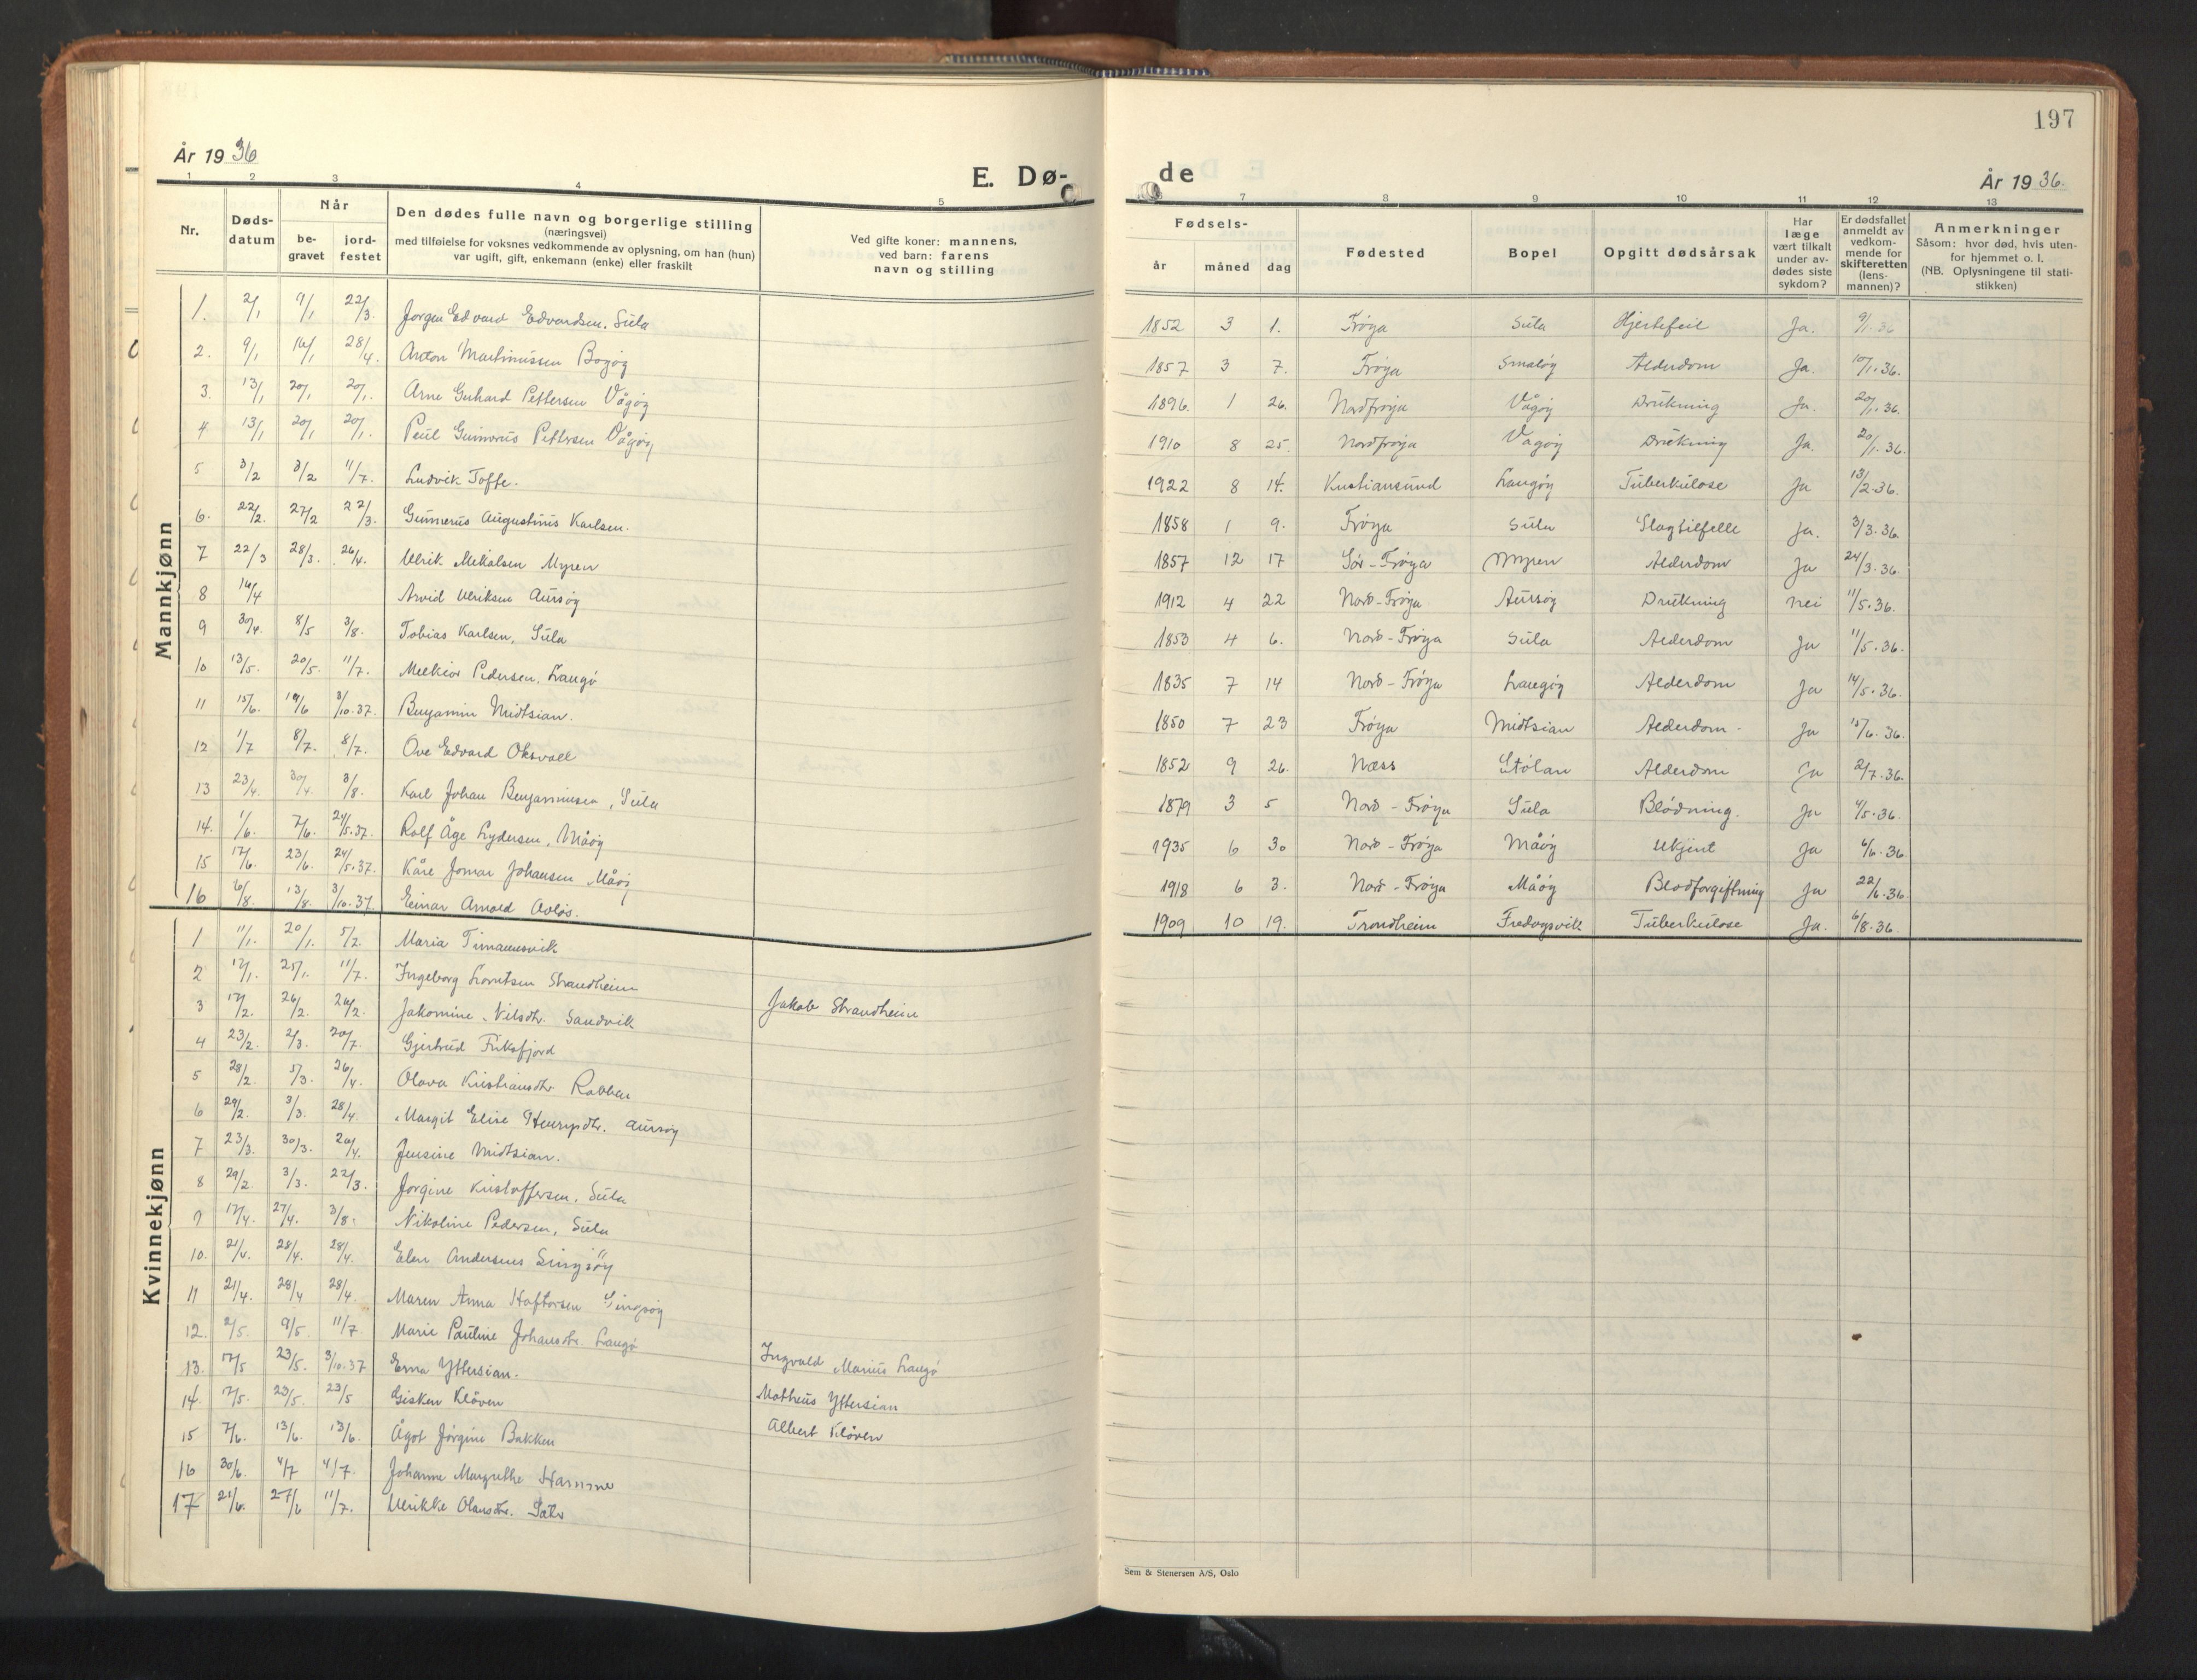 197
År 1936
E. Dø-
de
År 1936.
1 2 3 4 5
7 8 9 10 11 12 13
Nr.
Døds-
datum
Når
be-
gravet
jord-
festet
Den dødes fulle navn og borgerlige stilling
(næringsvei)
med tilføielse for voksnes vedkommende av oplysning, om han (hun)
var ugift, gift, enkemann (enke) eller fraskilt
Ved gifte koner: mannens,
ved barn: farens
navn og stilling
Fødsels-
år måned dag
Fødested
Bopel
Opgitt dødsårsak
Har
læge
vært tilkalt
under av-
dødes siste
sykdom?
Er dødsfallet
anmeldt av
vedkom-
mende for
skifteretten
(lens-
mannen)?
Anmerkninger
Såsom: hvor død, hvis uten-
for hjemmet o. l.
(NB. Oplysningene til stati-
stikken)
Mannkjønn
1. 2/1 9/1 22/3. Jørgen Edvard Edvardsen, Sula 1852 3 1. Frøya Sula Hjertefeil Ja. 9/1.36
2. 9/1 16/1 28/4. Anton Martinussen Bogøy 1857 3 7. Frøya Småløy Alderdom Ja. 10/1.36.
3. 13/1 20/1 20/1. Arne Gerhard Pettersen Vågøy 1896. 1 26. Nordfrøya Vågøy Drukning Ja. 20/1.36.
4 13/1 20/1 20/1. Paul Gunnerius Pettersen Vågøy 1910 8 25. Nordfrøya Vågøy Drukning Ja. 20/1.36.
5 3/2 8/2 11/7. Ludvik Toffe. 1922 8 14. Kristiansund Langøy Tuberkulose Ja 13/2.36.
6. 22/2. 27/2 22/3. Gunnerus Augustinus Karlsen. 1858 1 9. Frøya Sula Slagtilfelle Ja. 3/3.36.
7 22/3 28/3. 26/4. Ulrik Mikalsen Myren 1857 12 17 Sør-Frøya Myren Alderdom Ja 24/3.36.
8 16/4 Arvid Ulriksen Aursøy 1912 4 22 Nord-Frøya Aursøy Drukning nei 11/5.36.
9 30/4. 8/5 3/8. Tobias Karlsen, Sula 1853 4 6. Nord-Frøya Sula Alderdom Ja 11/5.36.
10 13/5. 20/5. 11/7. Melkior Pedersen, Langø 1835 7 14 Nord-Frøya Langøy Alderdom Ja 14/5.36.
11 15/6. 19/6 3/10.37. Benjamin Midtsian. 1850 7 23 Frøya Midtsian Alderdom. Ja 15/6.36.
12 1/7 8/7. 8/7. Ove Edvard Oksvoll 1852 9 26. Næss Stølan Alderdom Ja 2/7.36.
13 23/4. 30/4. 3/8. Karl Johan Benjaminsen, Sula 1879 3 5 Nord-Frøya Sula Blødning. Ja 4/5.36.
14. 1/6. 7/6. 24/5.37. Rolf Åge Lydersen, Måøy 1935 6 30 Nord-Frøya Måøy Ukjent Ja 6/6.36
15 17/6. 23/6. 24/5.37. Kåre Jomar Johansen Måøy 1918 6 3. Nord-Frøya Måøy Blodforgiftning Ja 22/6.36.
16 6/8. 13/8. 3/10.37. Einar Arnold Avløs. 1909 10 19. Trondheim Fredagsvik Tuberkulose Ja. 6/8.36.
Kvinnekjønn
1 11/1. 20/1. 5/2. Maria
2 17/1. 25/1. 11/7. Ingeborg Lorntsen Strandheim Jakob Strandheim
3 17/2. 26/2. 26/2. Jakomine Nilsdtr. Sandvik
4 23/2. 2/3. 20/7. Gjertrud
5 28/2. 5/3. 26/4. Olava Kristiansdtr Rabben
6 29/2. 3/3. 28/4. Margit Elise Henrysdtr. Aursøy
7 23/3. 30/3. 26/4. Jensine Midtsian.
8 29/2. 3/3. 22/3. Jørgine Kristoffersen, Sula
9 17/4. 27/4. 3/8. Nikoline Pedersen, Sula
10. 21/4. 28/4. 28/4. Elen Andersens Singsøy
11 21/4. 28/4 28/4. Maren Anna Haftorsen Singsøy
12. 2/5. 9/5. 11/7 Marie Pauline Johansdtr. Langø Ingvald Marius Langø
13. 17/5 23/5. 3/10.37 Erna Yttersian. Matheus Yttersian
14. 17/5. 23/5. 23/5 Gisken Kløven Albert Kløven
15 7/6. 13/6. 13/6. Ågot Jørgine Bakken
16 30/6. 4/7 4/7. Johanna Margrethe Hammer
17 21/6. 27/6 11/7. Ulrikke Olausdtr. Sætr
Sem & Stenersen A/S, Oslo